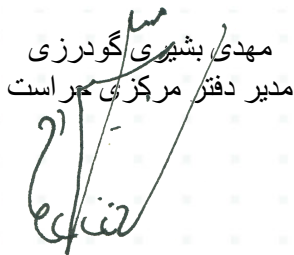 مهدی بشیری گودرزی
مدیر دفتر مرکزی حراست